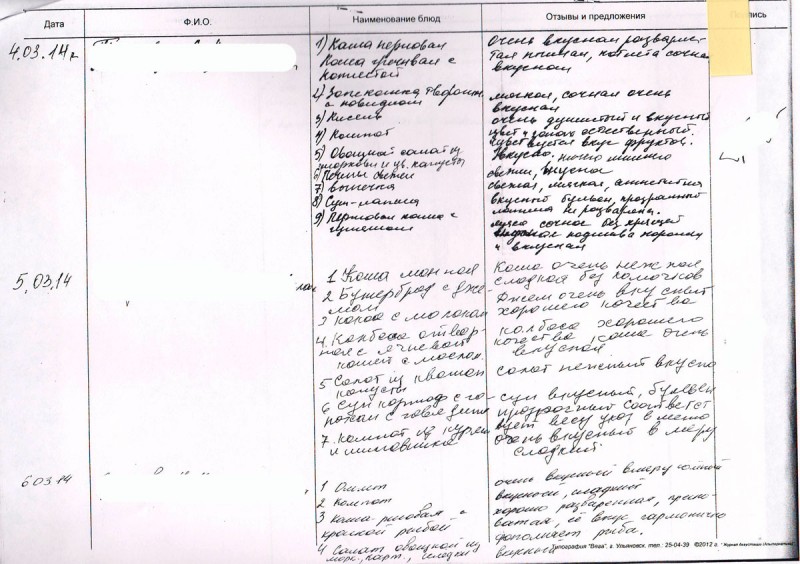 Дата Ф.И.О. Наименование блюд Отзывы и предложения
4.03.14г
1) Каша перловая Очень вкусная разварис-
Каша гречневая с тая пышная, котлета сочная
котлетой вкусная
2) Запеканка творожн. мягкая, сочная очень
с повидлом вкусная
3) Кисель очень душистый и вкусный
4) Компот цвет и запах естественный.
чувствуется вкус фруктов.
5) Овощной салат из Вкусно. ничего лишнего
моркови и цв. капусты
6) свежие, вкусное
7) выпечка свежая, мягкая, аппетитная
8) Суп-лапша вкусный бульон, прозрачный
лапша не разварена.
9) Перловая каша с мясо сочное без хрящей
подлива хороша
и вкусная
5.03.14
1 Каша манная Каша очень нежная
сладкая без комочков
2 Бутерброд с дже- Джем очень вкусный
мом хорошего качества
3 какао с молоком
4. Колбаса отвар- колбаса хорошего
ная с ячневой качества каша очень
кашей с маслом. вкусная
5 Салат из квашен салат вкусно
капусты
6 Суп картоф с го- суп вкусный, бульон
рохом с говядиной прозрачный соответст
вует весу
7. Компот из кураги очень вкусный в меру
и шиповника сладкий
6 03.14
1 Омлет очень вкусный в меру
2 Компот вкусный, сладкий
3 каша рисовая с хорошо разваренная,
красной рыбой её вкус гармонично
дополняет рыба.
4 Салат овощной из вкусный
морк., карт.,
Типография "Вега", г. Ульяновск, тел.: 25-04-39 ©2012 г.